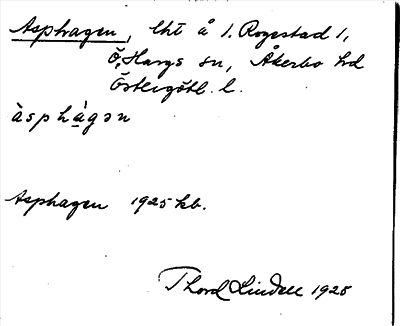 Asphagen, lht å 1. Rogestad 1,
Ö. Hargs sn, Åkerbo hd
Östergötl. l.
àsphà̱gən
Asphagen 1925 kb.
Thord Lindell 1925